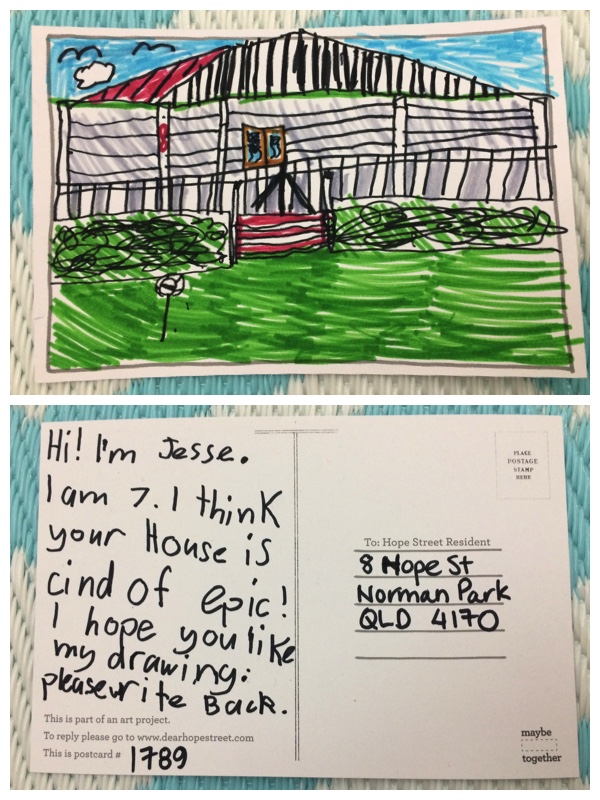 Hi! I'm Jesse.
I am 7. I think
your House is
cind of epic!
I hope you like
my drawing.
please write Back.
This is part of an art project.
To reply please go to www.dearhopestreet.com
This is postcard # 1789
PLACE
POSTAGE
STAMP
HERE
To: Hope Street Resident
8 Hope St
Norman Park
QLD 4170
maybe
together